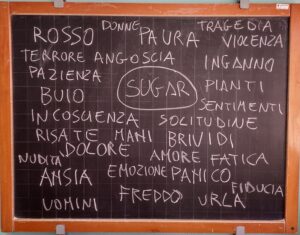 DONNE TRAGEDIA
ROSSO PAURA VIOLENZA
TERRORE ANGOSCIA INGANNO
PAZIENZA
BUIO SUGAR PIANTI
SENTIMENTI
INCOSCIENZA SOLITUDINE
RISATE MANI BRIVIDI
DOLORE
NUDITÀ AMORE FATICA
ANSIA EMOZIONE PANICO
FIDUCIA
UOMINI FREDDO URLA